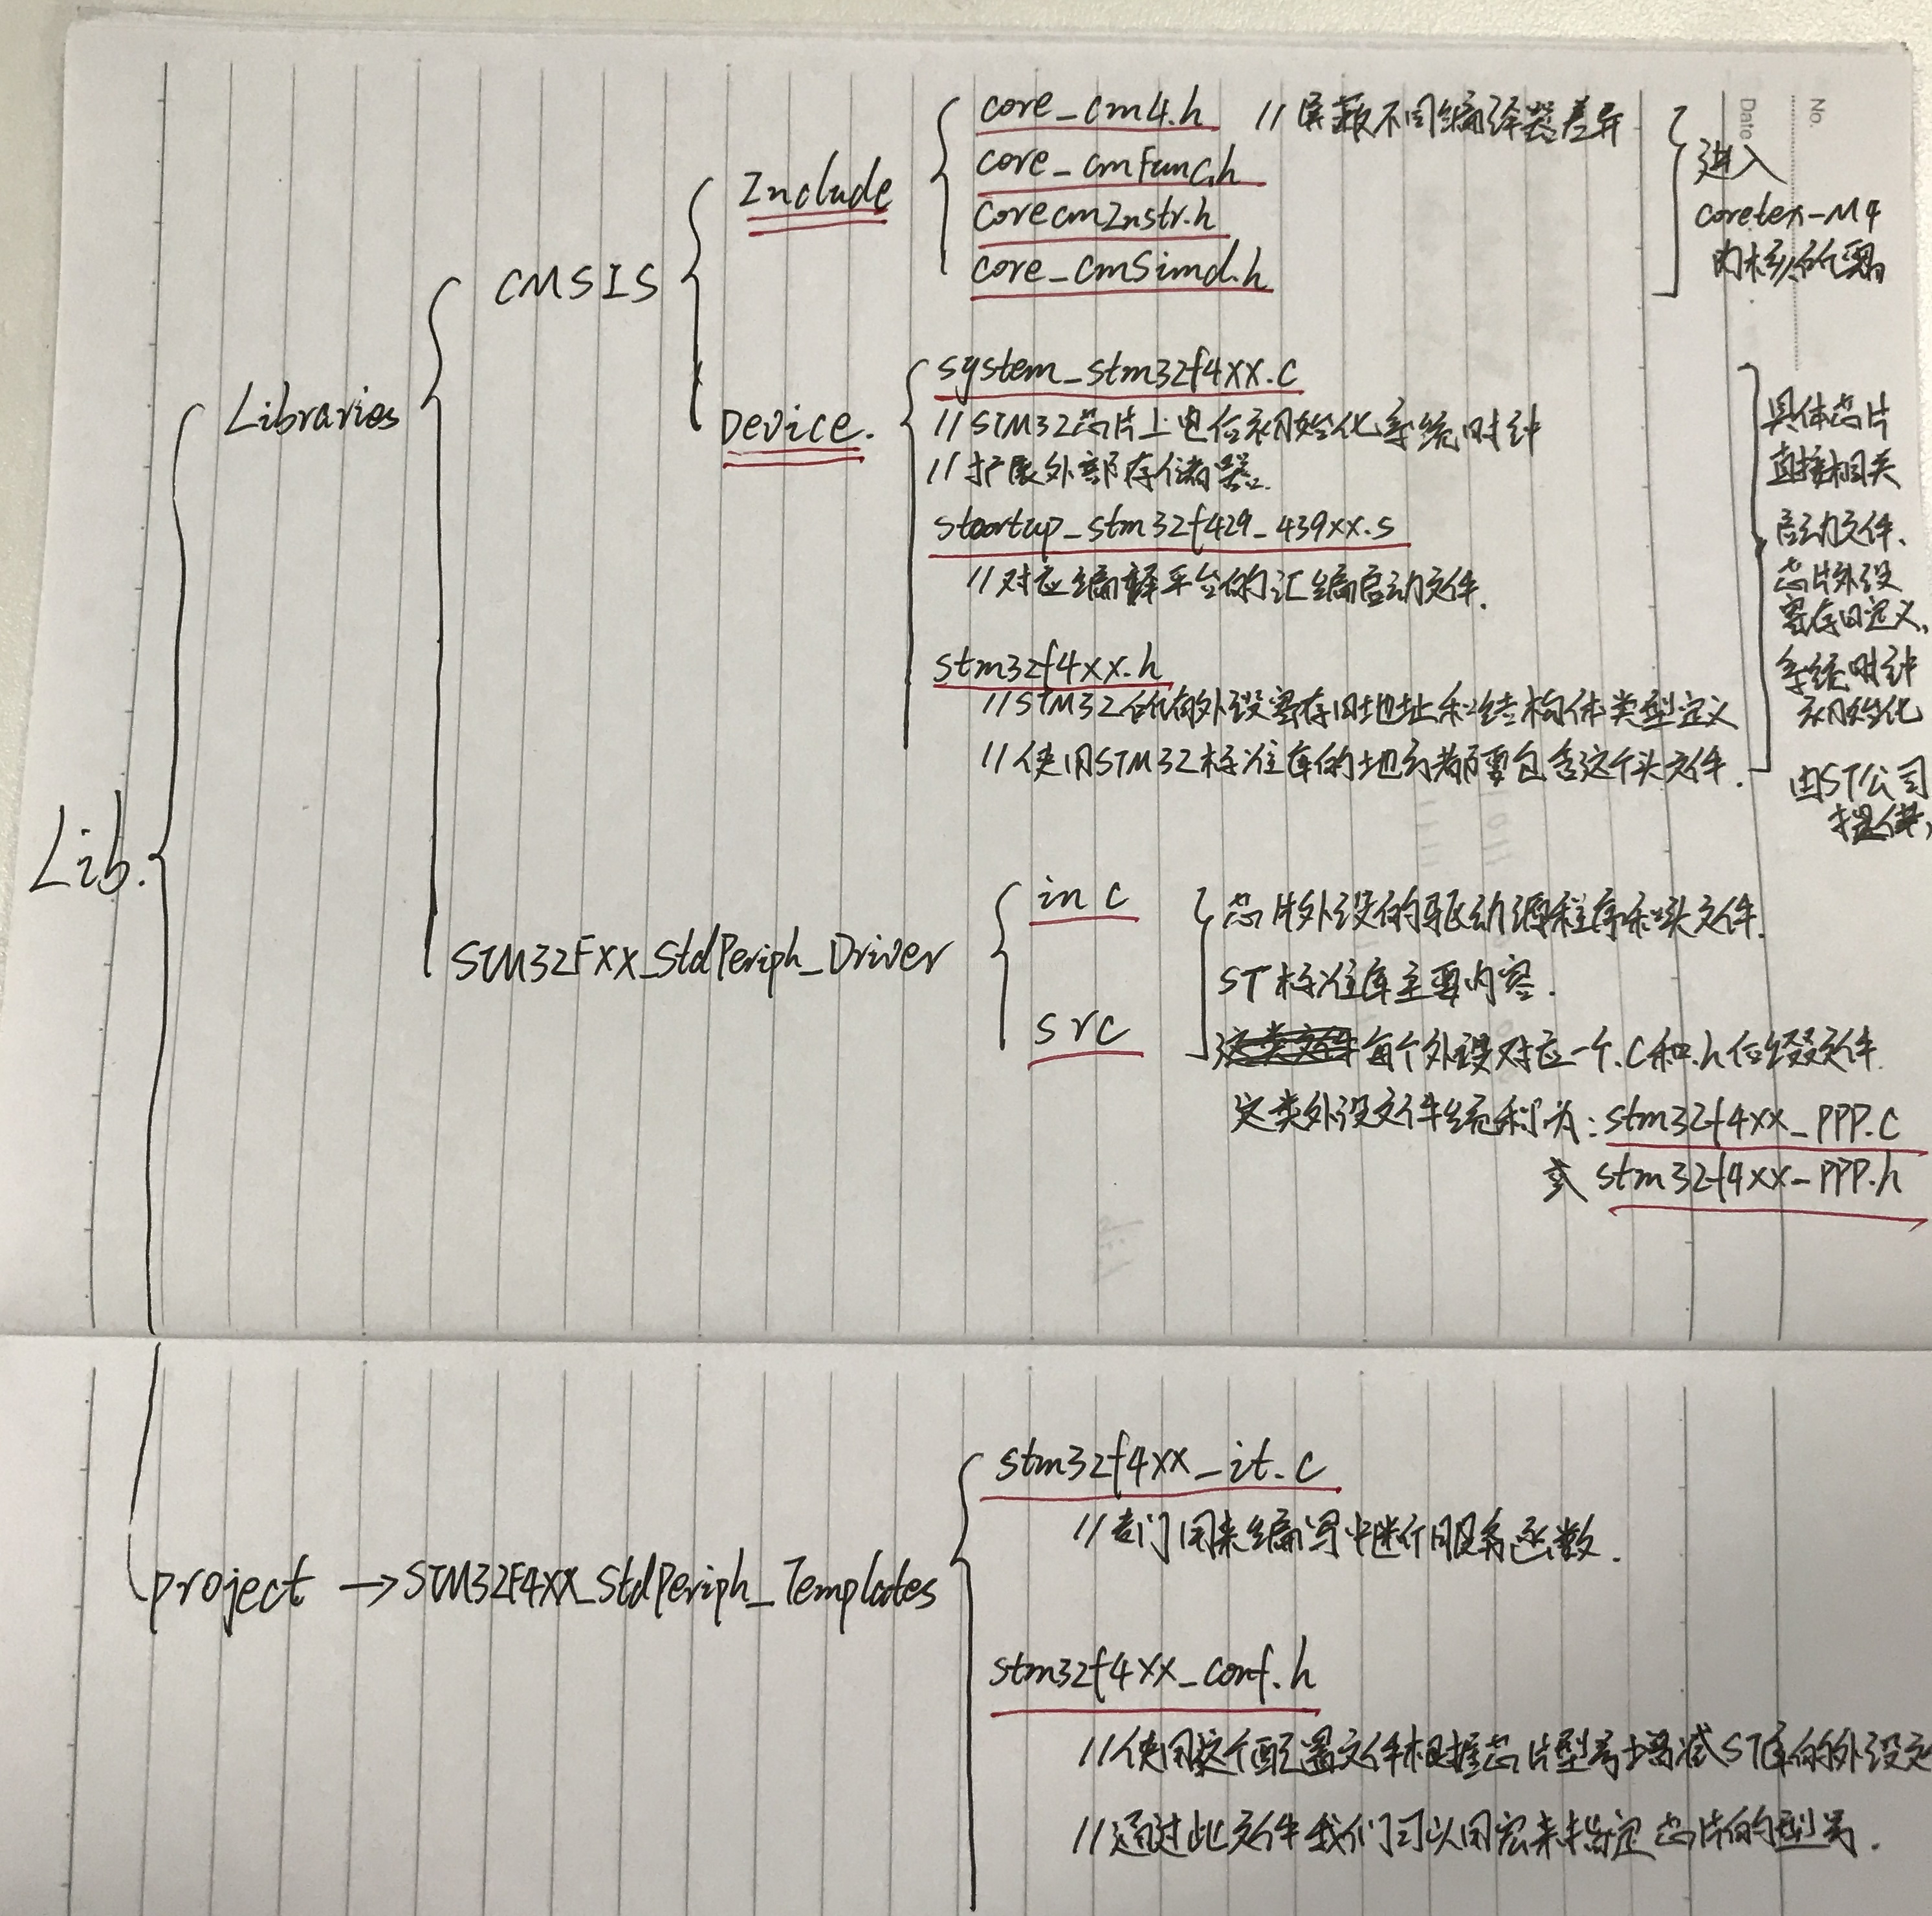 No.
Date
core_cm4.h // 屏蔽不同编译器差异
core_cmFunc.h
corecmInstr.h
core_cmSimd.h
进入
coretex-M4
内核所需
Include
CMSIS
system_stm32f4xx.c
//STM32芯片上电后初始化系统时钟
//扩展外部存储器.
startup_stm32f429_439xx.s
//对应编译平台的汇编启动文件.
stm32f4xx.h
//STM32的所有外设寄存用地址和结构体类型定义
//使用STM32标准库的地方都要包含这个头文件.
具体芯片
直接相关
启动文件、
芯片外设
寄存用定义、
系统时钟
初始化
由ST公司
提供,
Device.
Libraries
Lib.
inc
src
芯片外设的驱动源程序和头文件.
ST标准库主要内容.
每个外设对应一个.c和.h后缀文件.
这类外设文件统称为: stm32f4xx_PPP.c
或 stm32f4xx_PPP.h
STM32FXX_StdPeriph_Driver
stm32f4xx_it.c
//专门用来编写中断服务函数.
project →STM32F4XX_StdPeriph_Templates
stm32f4xx_conf.h
//使用这个配置文件根据芯片型号增减ST库的外设文
//通过此文件我们可以用宏来指定芯片的型号.